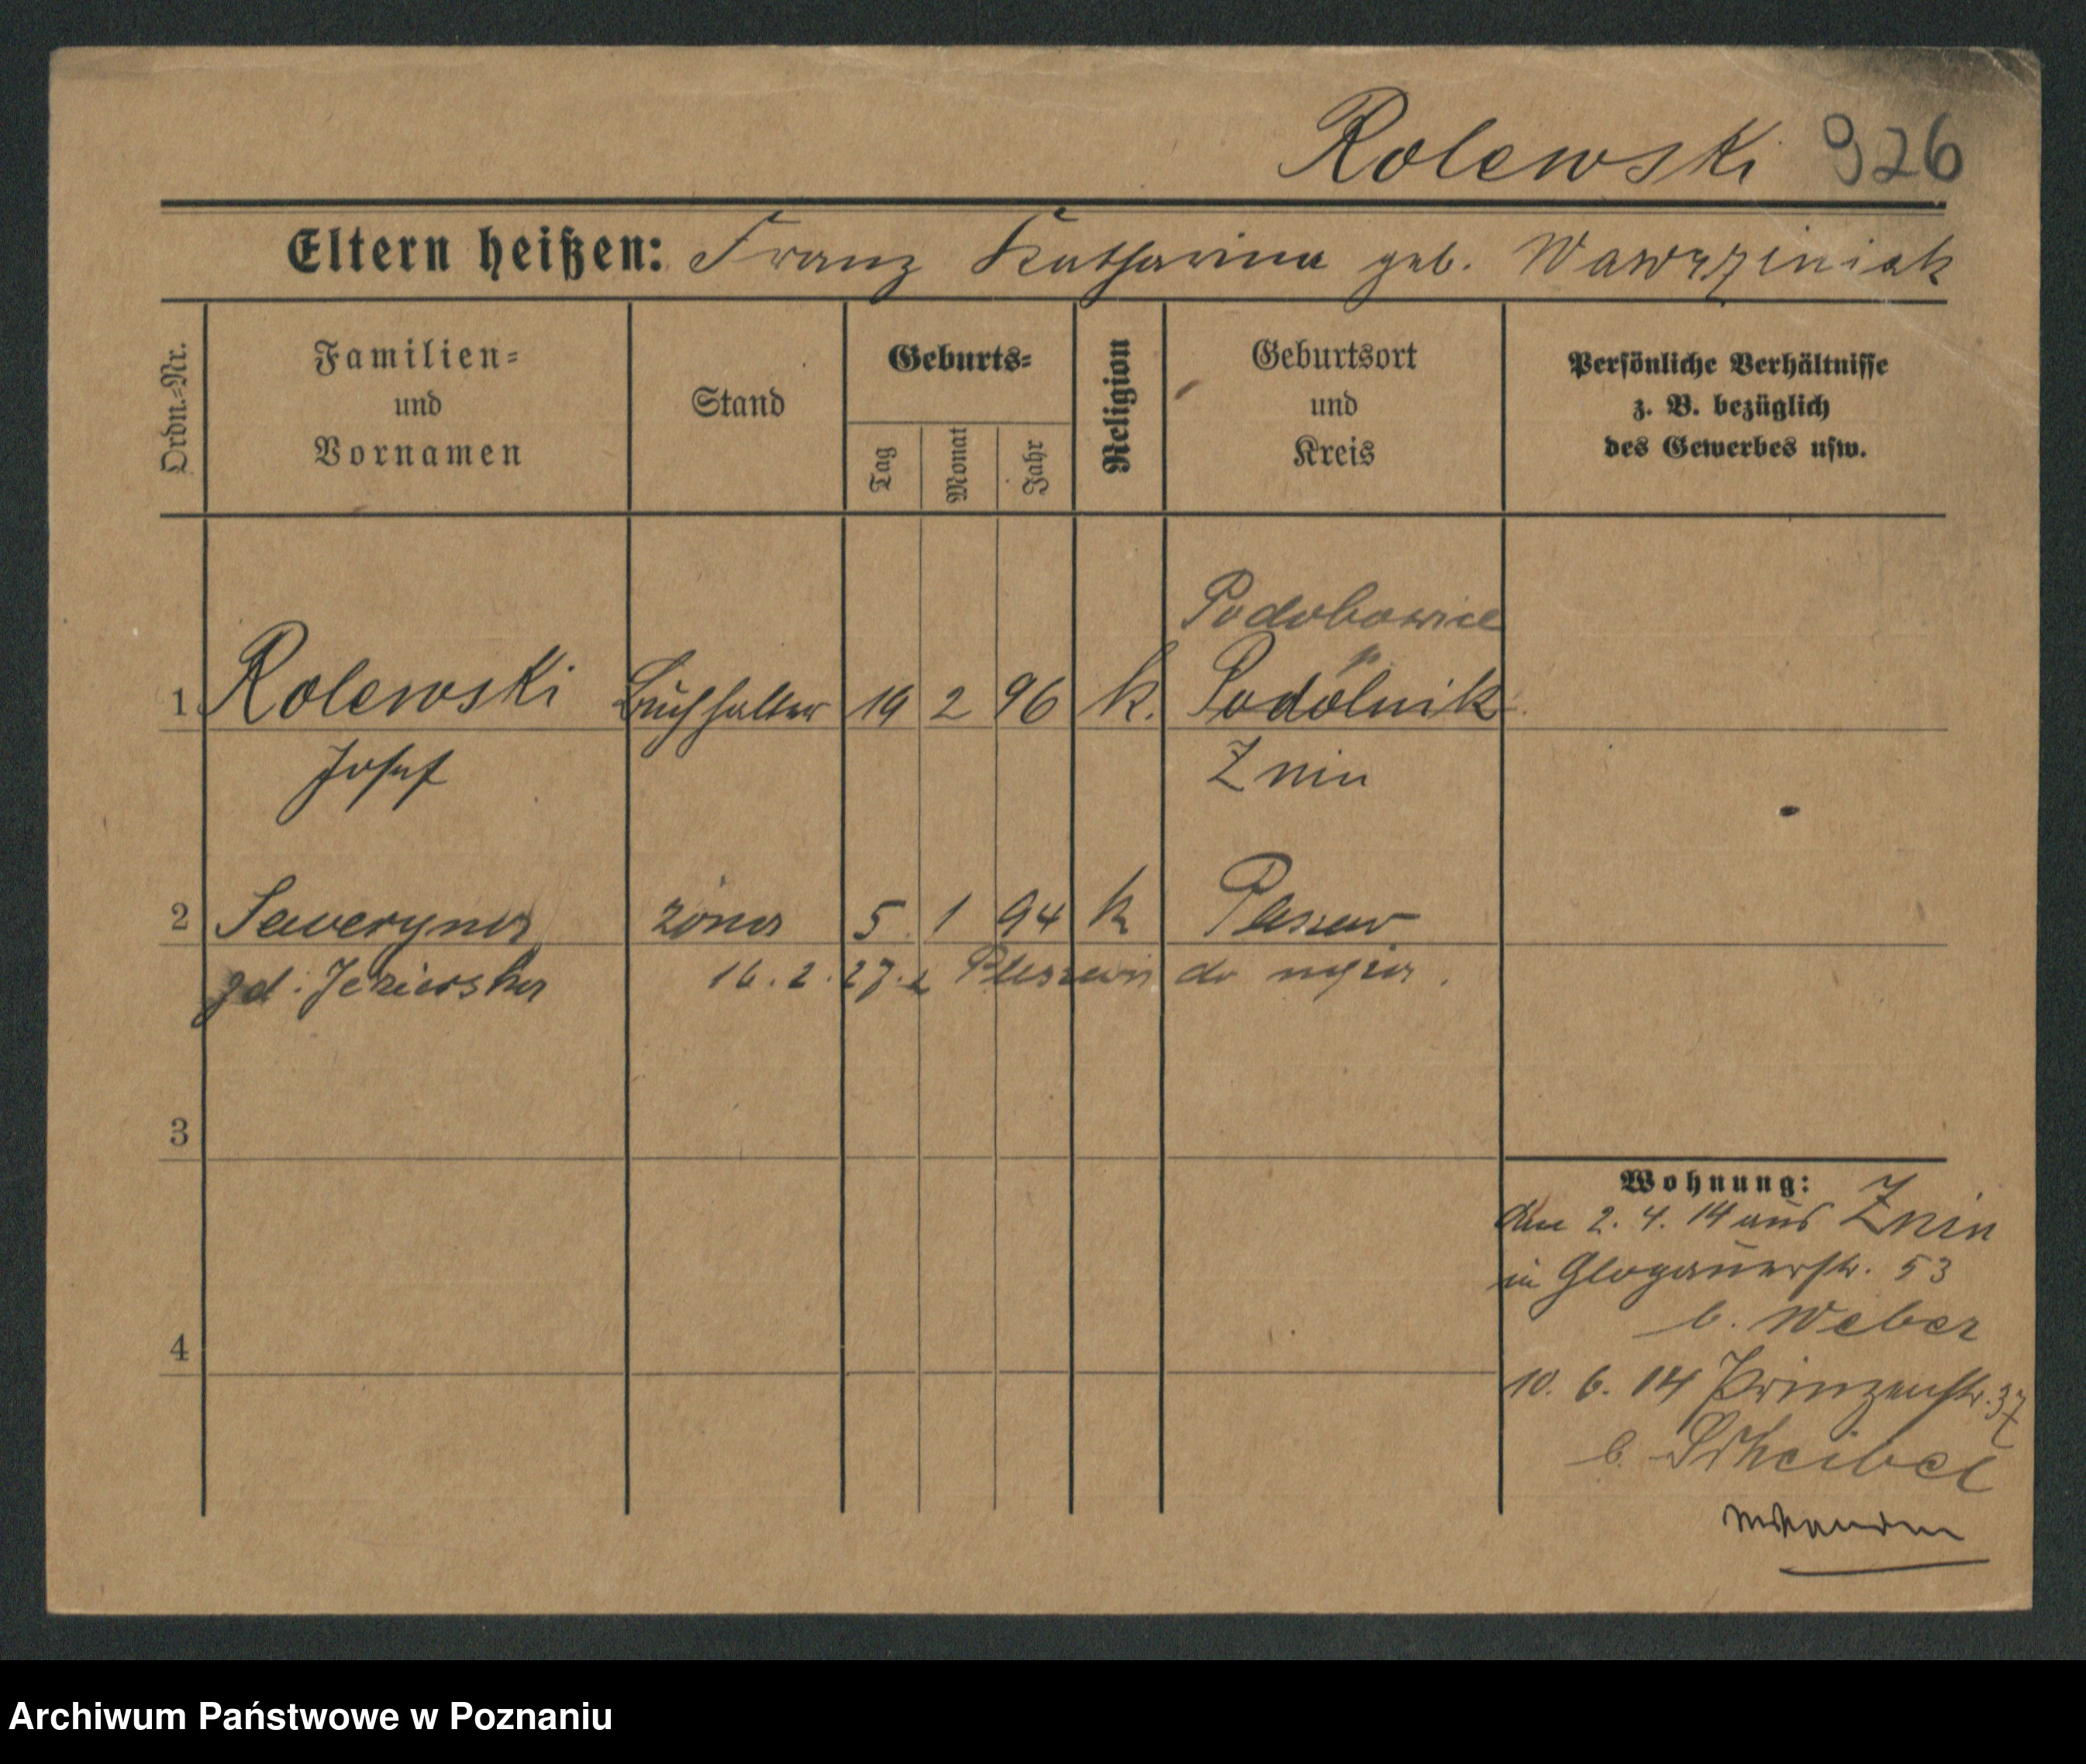 Rolewski 926
Eltern heißen: Franz Katharina geb. Wawrziniak
Ordn.-Nr.
Familien-
und
Vornamen
Stand
Geburts-
Tag
Monat
Jahr
Religion
Geburtsort
und
Kreis
Persönliche Verhältnisse
z. B. bezüglich
des Gewerbes usw.
Podobowice
1 Rolewski Buchhalter 19 2 96 k. Podólnik
Josef Znin
2 Seweryna żona 5. 1 94 k Pleszew
zd. Jezierska 16.2.27. z Pleszewa do męża.
3
4
Wohnung:
den 2. 4. 14 aus Znin
in Glogauerstr. 53
b. Weber
10. 6. 14 Prinzenstr. 37
b. Scheibel
Archiwum Państwowe w Poznaniu